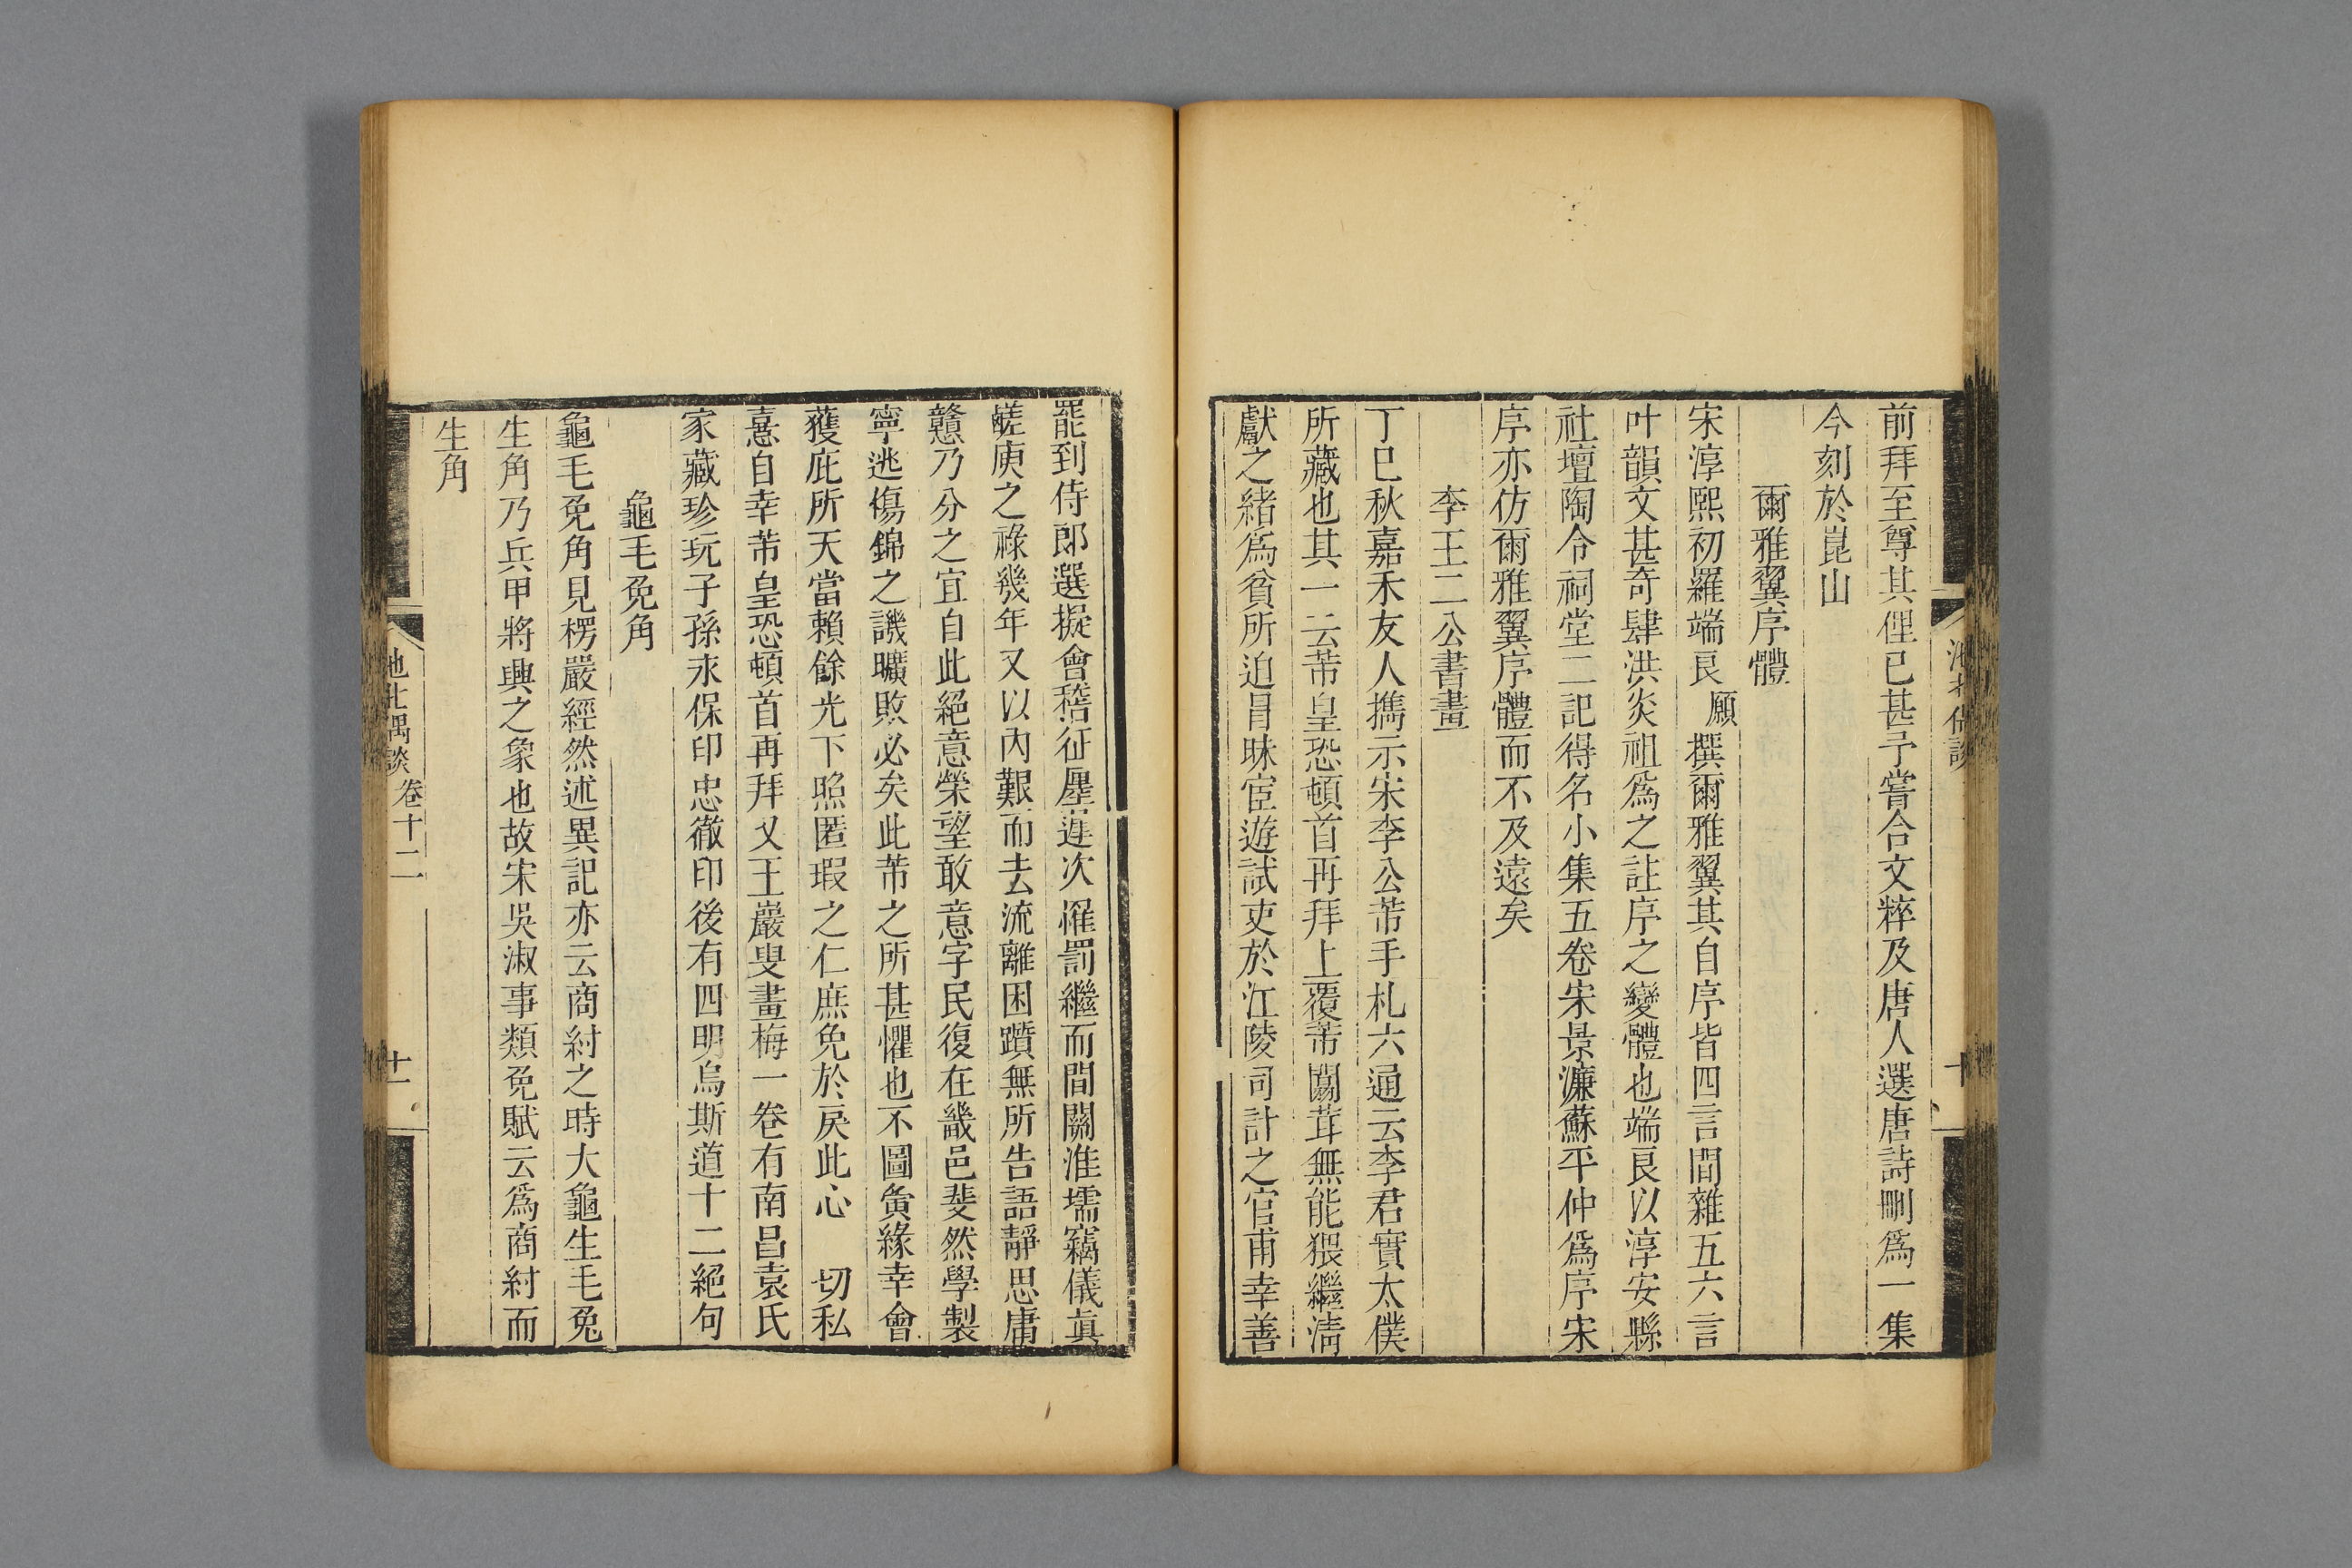 前拜至尊其俚已甚予嘗合文粹及唐人選唐詩刪爲一集
今刻於崑山
爾雅翼序體
宋淳熙初羅端良願撰爾雅翼其自序皆四言間雜五六言
叶韻文甚奇肆洪炎祖爲之註序之變體也端良以淳安縣
社壇陶令祠堂二記得名小集五卷宋景濂蘇平仲爲序宋
序亦仿爾雅翼序體而不及遠矣
李王二公書畫
丁巳秋嘉禾友人攜示宋李公芾手札六通云李君實太僕
所藏也其一云芾皇恐頓首再拜上覆芾闒茸無能猥繼淸
獻之緒爲貧所迫冒昧宦遊試吏於江陵司計之官甫幸善
罷到侍郎選擬會稽征廛薳次罹罰繼而間關淮壖竊儀眞
鹺庾之祿幾年又以內艱而去流離困躓無所告語靜思庸
戇乃分之宜自此絕意榮望敢意字民復在畿邑斐然學製
寧逃傷錦之譏曠敗必矣此芾之所甚懼也不圖夤緣幸會
獲庇所天當賴餘光下照匿瑕之仁庶免於戾此心 切私
憙自幸芾皇恐頓首再拜又王巖叟畫梅一卷有南昌袁氏
家藏珍玩子孫永保印忠徹印後有四明烏斯道十二絕句
龜毛兔角
龜毛兔角見楞嚴經然述異記亦云商紂之時大龜生毛兔
生角乃兵甲將興之象也故宋吳淑事類兔賦云爲商紂而
生角
池北偶談 卷十二 十一